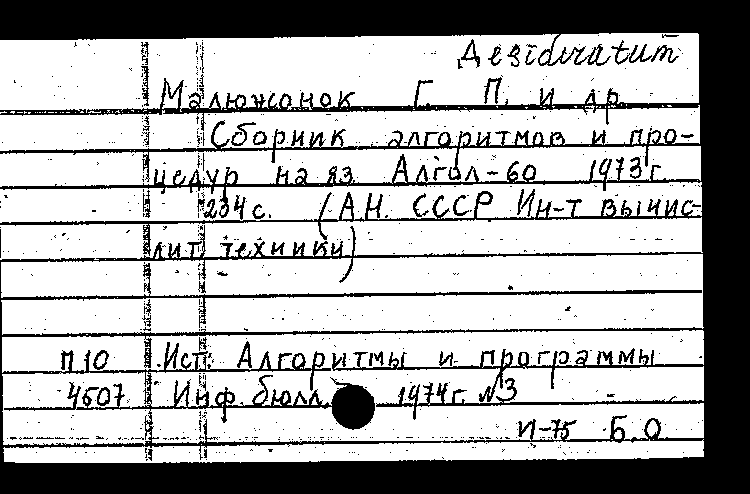 Дезideratum
Малюжонок Г. П. и др.
Сборник алгоритмов и про-
цедур на яз Алгол-60 1973 г.
234 с. (АН. СССР Ин-т вычис-
лит. техники)
П 10 Исп: Алгоритмы и программы
4607 Инф. бюлл. 1974 г. №3
И-75 Б. О.